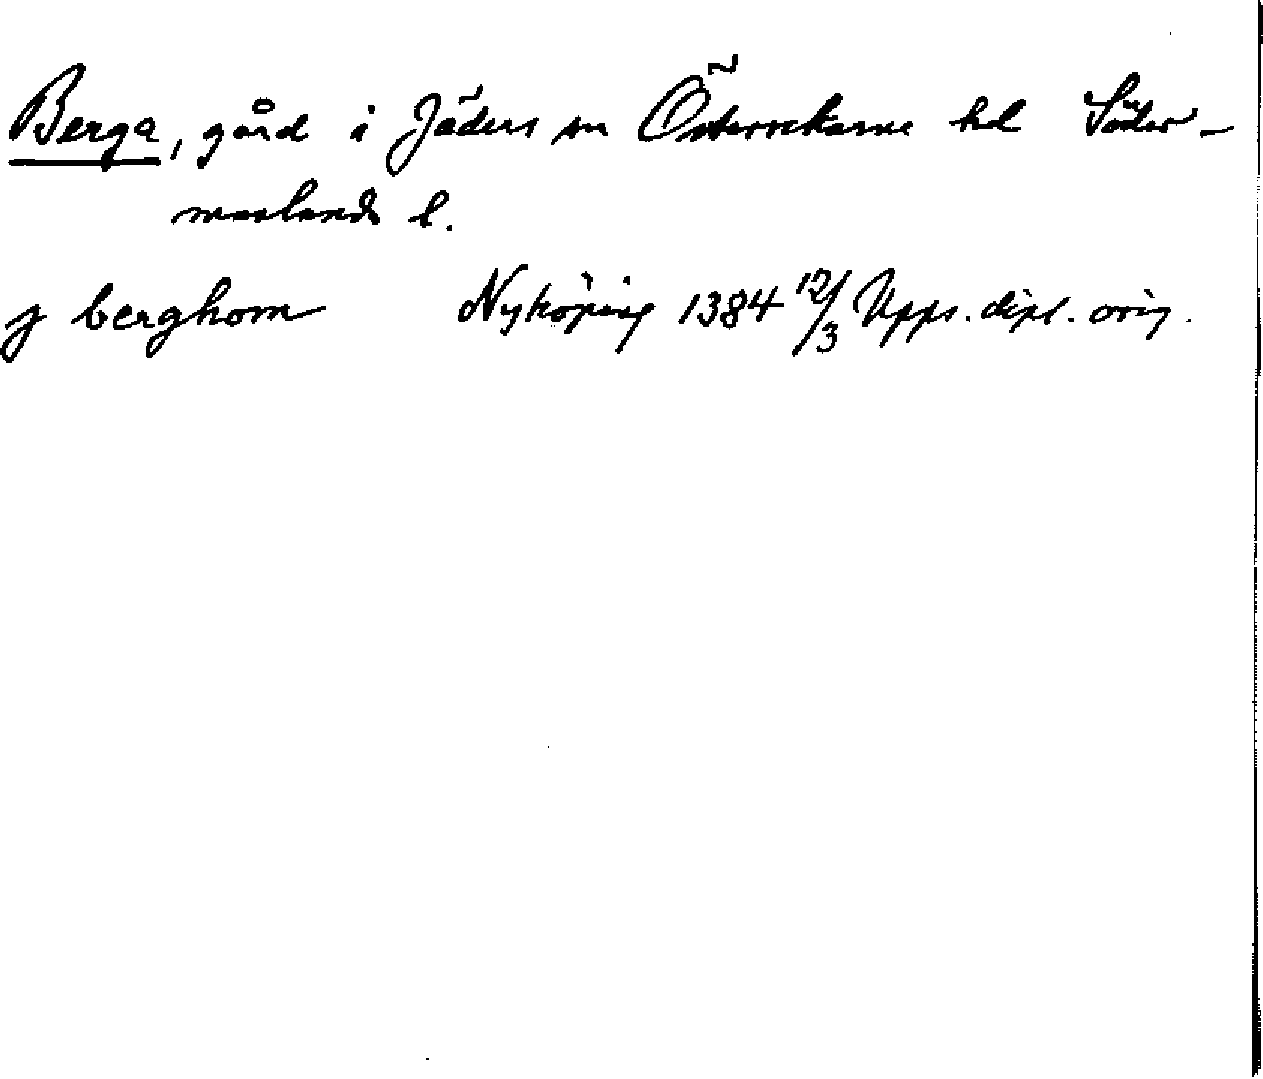 Berga, gård i Jäders sn Österrekarne hd Söder-
manlands l.
j berghom Nyköping 1384 12/3 Upps. dipl. orig.